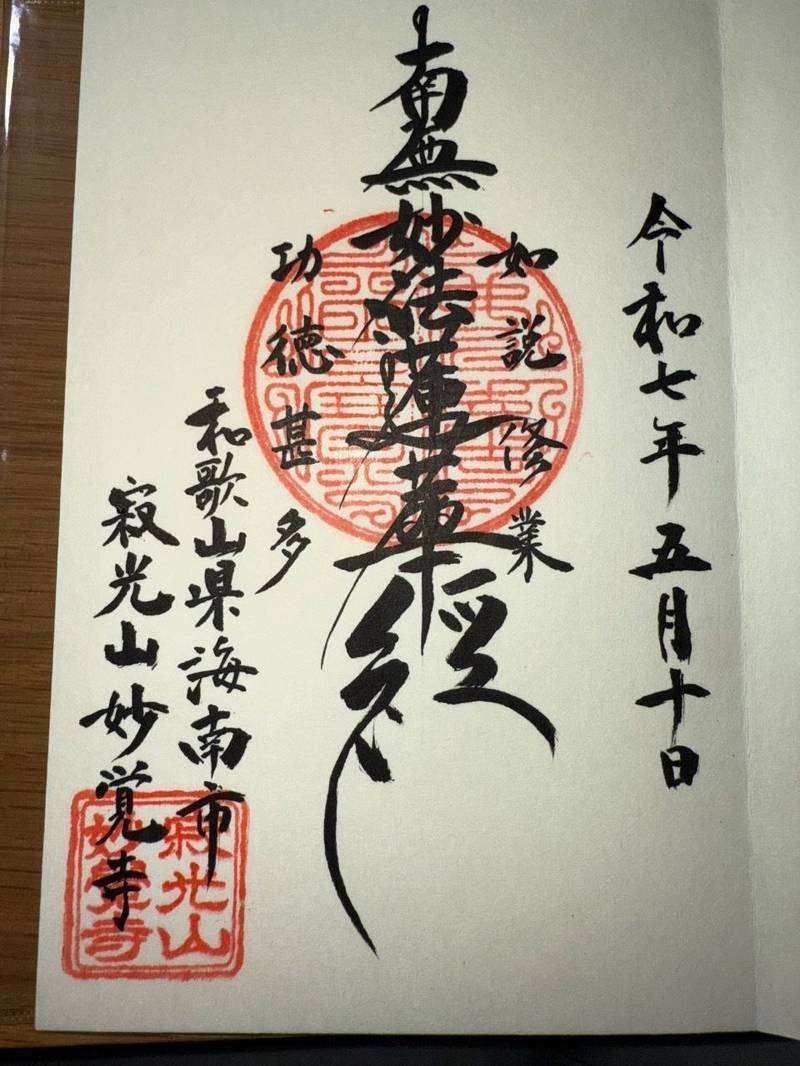 令和七年五月十日
如説修業
南無妙法蓮華経
功徳甚多
和歌山県海南市
寂光山妙覚寺
寂光山
妙覺寺